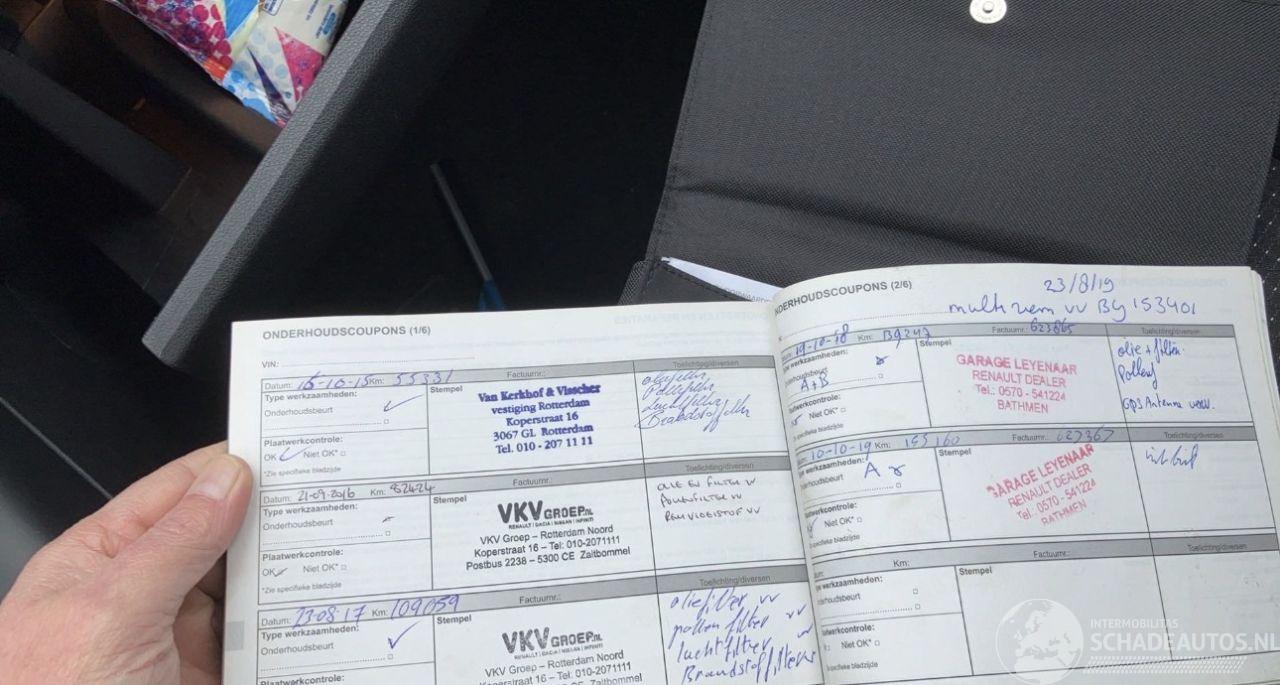 ONDERHOUDSCOUPONS (1/6)
VIN:
Datum: 16-10-15 Km: 55331 Factuurnr.: Toelichting/diversen
Type werkzaamheden: Stempel
Onderhoudsbeurt
Plaatwerkcontrole:
OK Niet OK*
*Zie specifieke bladzijde
Van Kerkhof & Visscher
vestiging Rotterdam
Koperstraat 16
3067 GL Rotterdam
Tel. 010 - 207 11 11
oliefilter
Pollenfilter
Luchtfilter
Brandstoffilter
Datum: 21-09-2016 Km: 82424 Factuurnr.: Toelichting/diversen
Type werkzaamheden: Stempel
Onderhoudsbeurt
Plaatwerkcontrole:
OK Niet OK*
*Zie specifieke bladzijde
VKV GROEP.NL
RENAULT | DACIA | NISSAN | INFINITI
VKV Groep – Rotterdam Noord
Koperstraat 16 – Tel: 010-2071111
Postbus 2238 – 5300 CE Zaltbommel
OLIE EN FILTER VV
POLLENFILTER VV
REMVLOEISTOF VV
Datum: 23-08-17 Km: 109059 Factuurnr.: Toelichting/diversen
Type werkzaamheden: Stempel
Onderhoudsbeurt
Plaatwerkcontrole:
VKV GROEP.NL
RENAULT | DACIA | NISSAN | INFINITI
VKV Groep – Rotterdam Noord
Koperstraat 16 – Tel: 010-2071111
oliefilter vv
pollenfilter vv
luchtfilter vv
Brandstoffilter vv
NDERHOUDSCOUPONS (2/6)
23/8/19
multi riem vv By 153401
19-10-18 Km: 139247 Factuurnr.: 623865 Toelichting/diversen
Type werkzaamheden: Stempel
Onderhoudsbeurt
A+B
Plaatwerkcontrole:
Niet OK*
specifieke bladzijde
GARAGE LEYENAAR
RENAULT DEALER
Tel.: 0570 - 541224
BATHMEN
olie + filter
Pollenf
GPS Antenne verv.
10-10-19 Km: 155160 Factuurnr.: 627367 Toelichting/diversen
werkzaamheden: Stempel
onderhoudsbeurt A
Plaatwerkcontrole:
Niet OK*
specifieke bladzijde
GARAGE LEYENAAR
RENAULT DEALER
Tel.: 0570 - 541224
BATHMEN
Km: Factuurnr.: Toelichting/diversen
werkzaamheden: Stempel
onderhoudsbeurt
Plaatwerkcontrole:
Niet OK*
specifieke bladzijde
INTERMOBILITAS
SCHADEAUTOS.NL